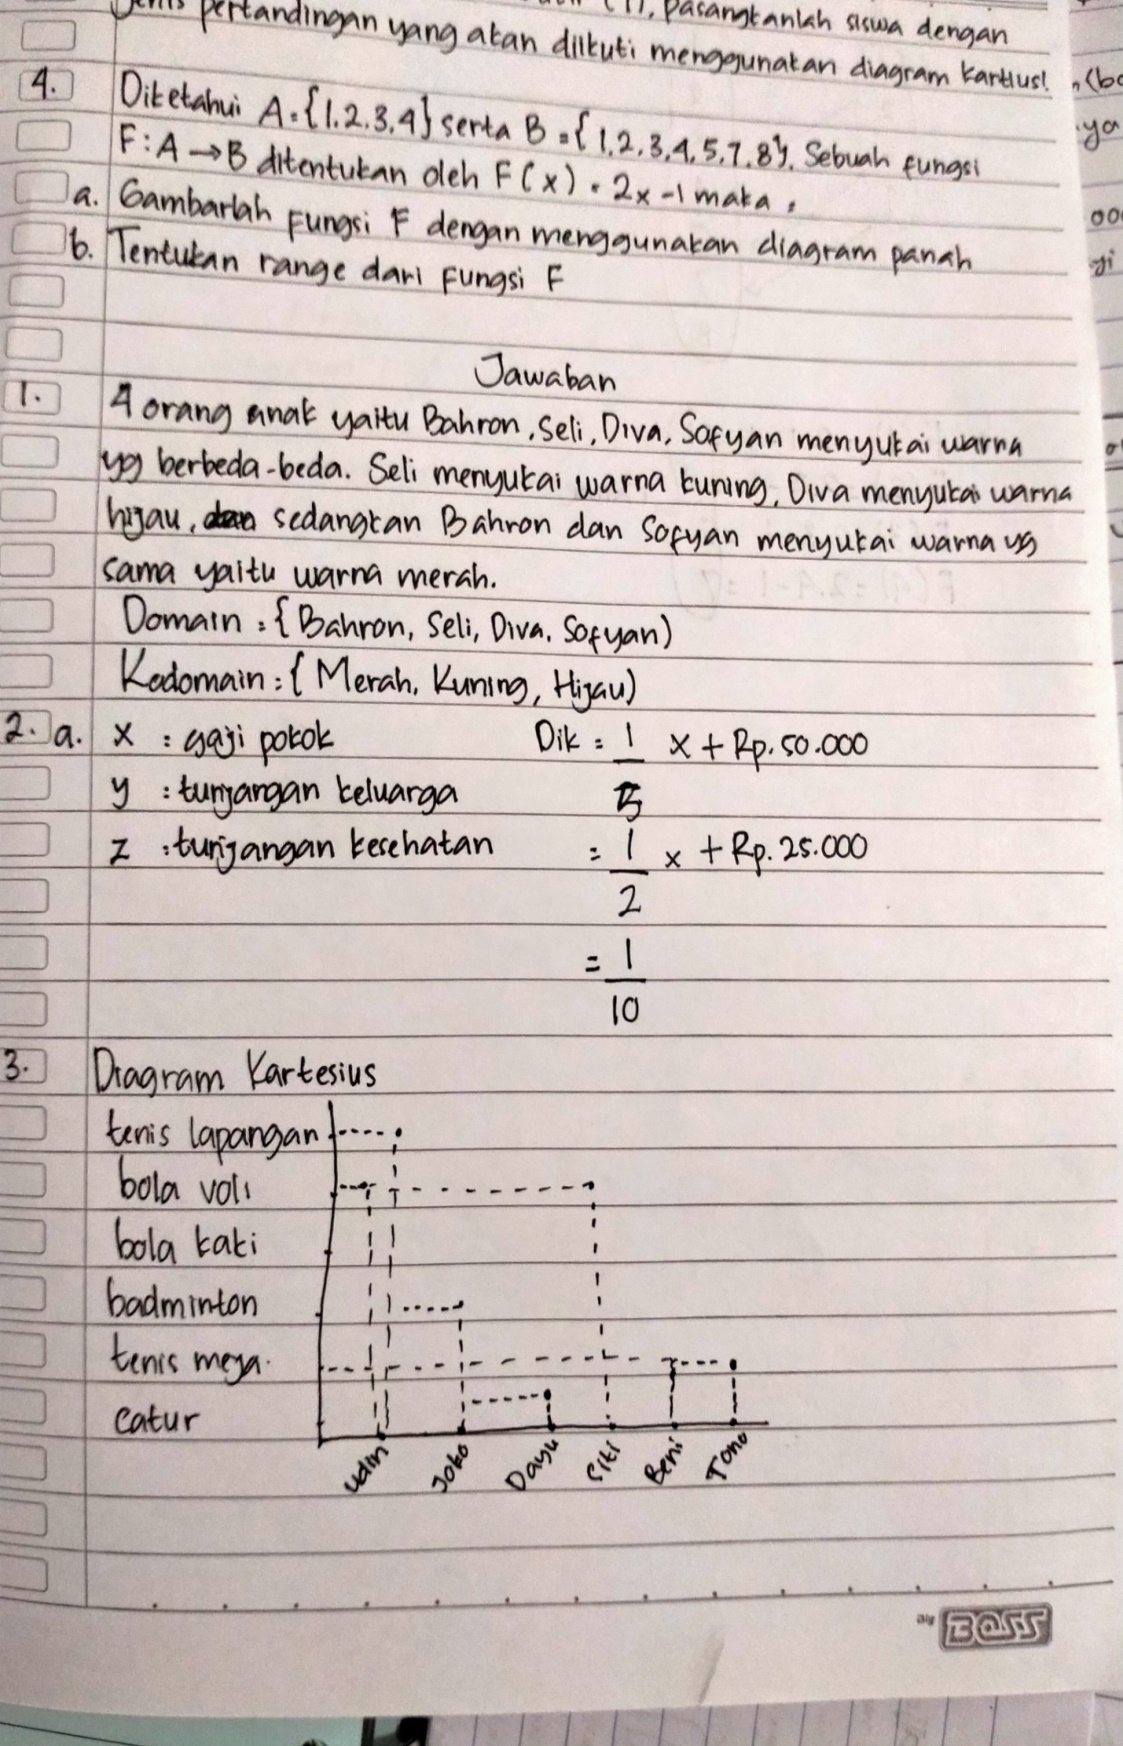 pertandingan yang akan diikuti menggunakan diagram kartius!
(1), pasangkanlah siswa dengan
4. Diketahui A = {1.2.3.4} serta B = {1,2,3,4,5,7,8}. Sebuah fungsi
F : A → B ditentukan oleh F(x) = 2x - 1 maka ,
a. Gambarlah Fungsi F dengan menggunakan diagram panah
b. Tentukan range dari Fungsi F
Jawaban
1. 4 orang anak yaitu Bahron, Seli, Diva, Sofyan menyukai warna
yg berbeda-beda. Seli menyukai warna kuning, Diva menyukai warna
hijau, sedangkan Bahron dan Sofyan menyukai warna yg
sama yaitu warna merah.
Domain : {Bahron, Seli, Diva, Sofyan)
Kodomain : { Merah, Kuning, Hijau)
2. a. x : gaji pokok Dik = 1/5 x + Rp. 50.000
y : tunjangan keluarga
z : tunjangan kesehatan = 1/2 x + Rp. 25.000
= 1/10
3. Diagram Kartesius
tenis lapangan
bola voli
bola kaki
badminton
tenis meja.
catur
Udin Joko Dayu Siti Beni Tono
BOSS